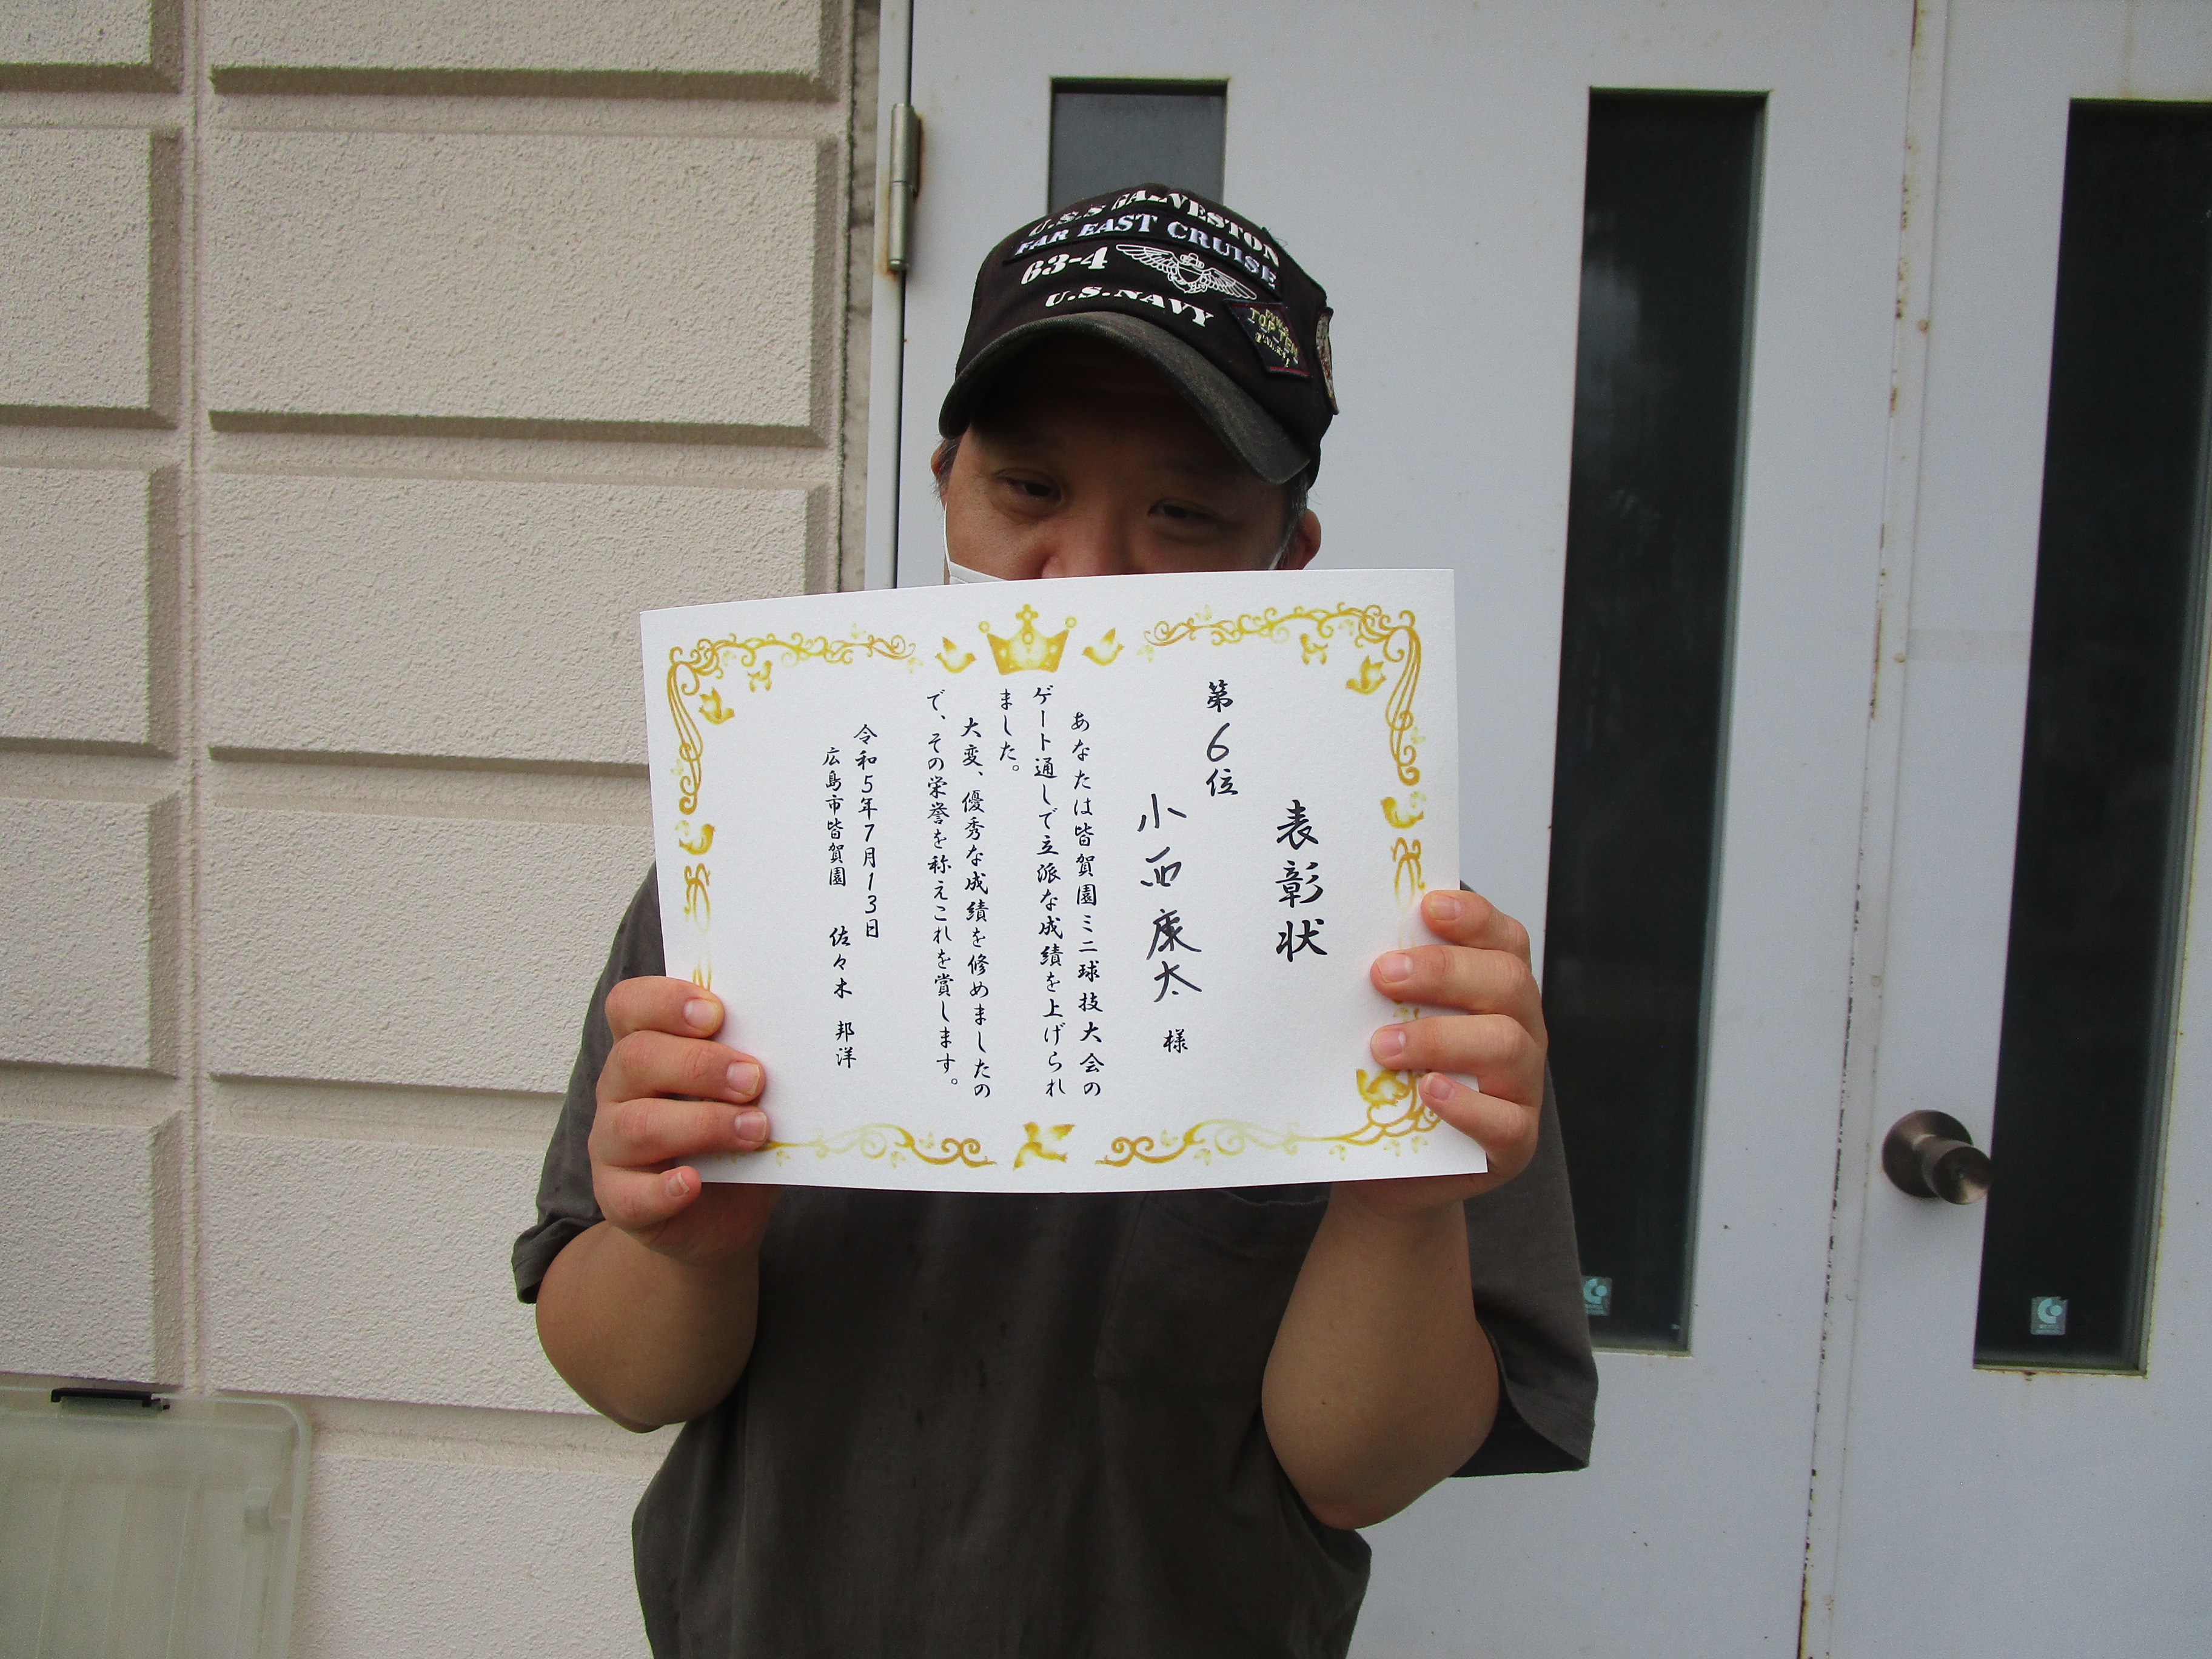 U.S.S GALVESTON
FAR EAST CRUISE
63-4
U.S.NAVY
TOP TEN
表彰状
第6位
小西康太 様
あなたは皆賀園ミニ球技大会の
ゲート通しで立派な成績を上げられ
ました。
大変、優秀な成績を修めましたの
で、その栄誉を称えこれを賞します。
令和5年7月13日
広島市皆賀園 佐々木 邦洋